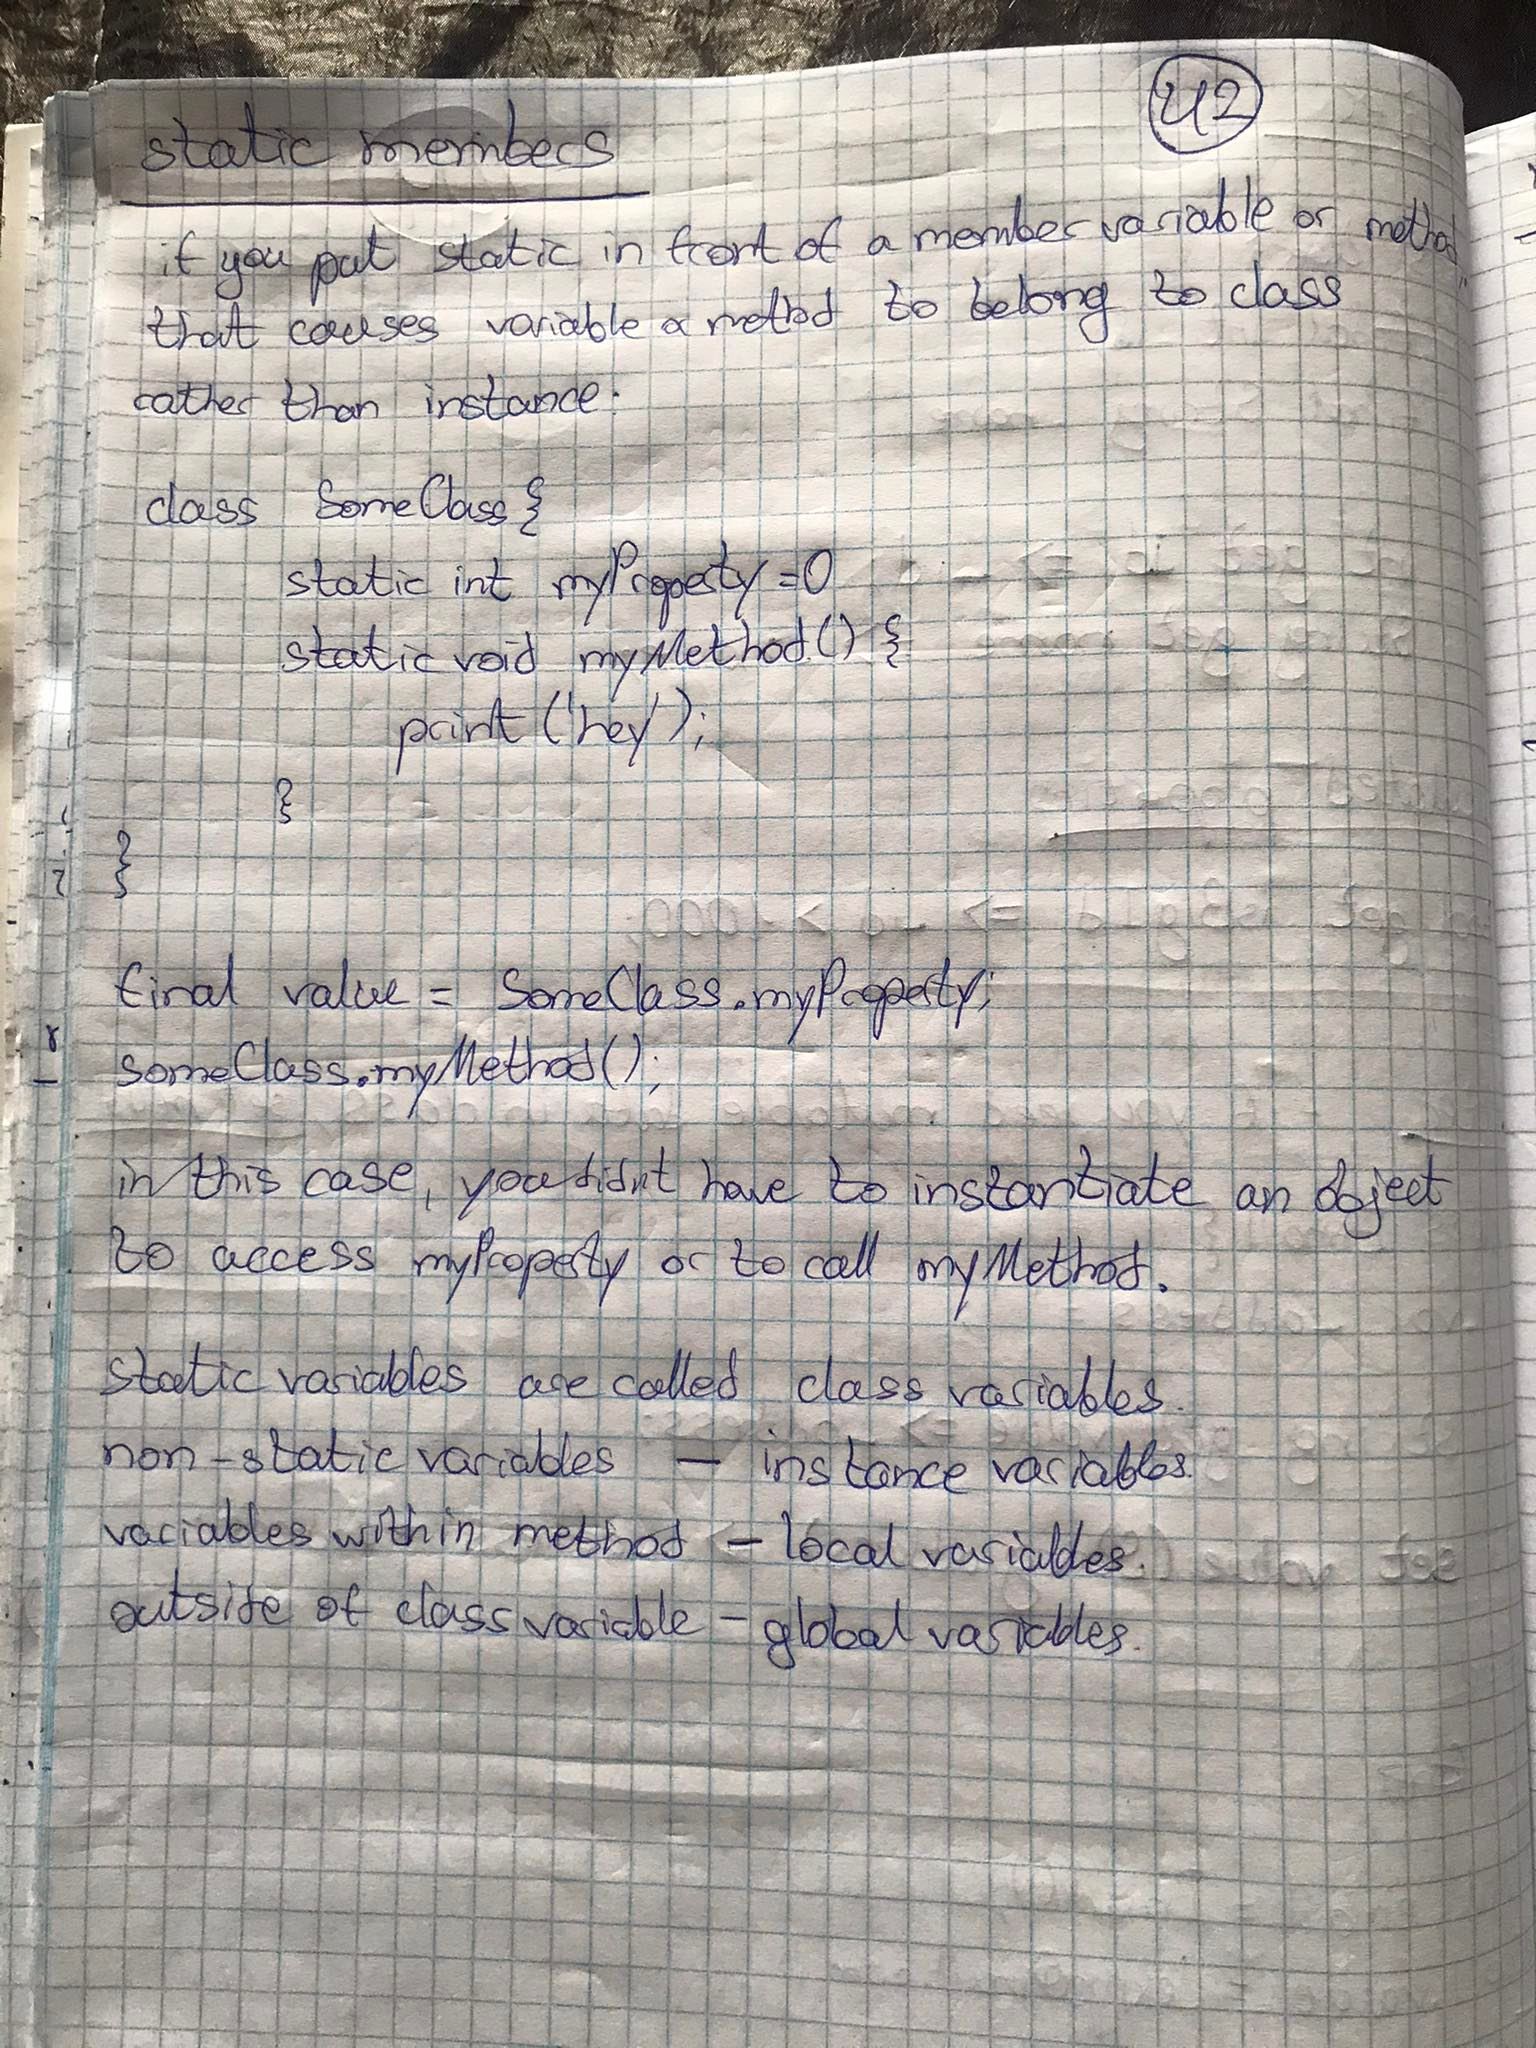 42
static members
if you put static in front of a member variable or method,
that causes variable or method to belong to class
rather than instance.
class SomeClass {
static int myProperty = 0
static void myMethod() {
print('hey');
}
}
final value = SomeClass.myProperty;
someClass.myMethod();
in this case, you didn't have to instantiate an object
to access myProperty or to call myMethod.
static variables are called class variables.
non-static variables — instance variables.
variables within method — local variables.
outside of class variable — global variables.